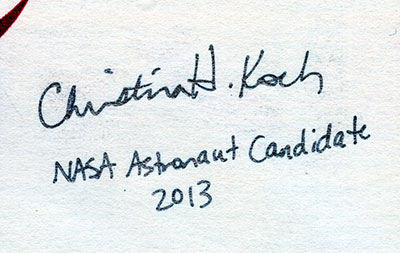 Christina H. Koch
NASA Astronaut Candidate
2013